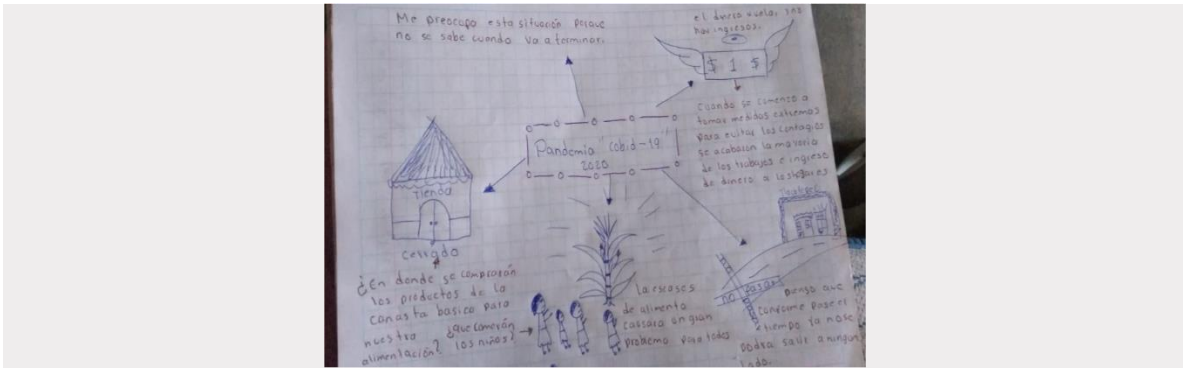 Me preocupa esta situación porque
no se sabe cuando va a terminar.
el dinero vuela, no
hay ingresos.
$ 1 $
Cuando se comenzo a
tomar medidas extremas
para evitar los contagios
se acabaron la mayoria
de los trabajos e ingreso
de dinero a los hogares
Pandemia "cobid-19"
2020
Tienda
cerrado
¿En donde se compraran
los productos de la
canasta basica para
nuestra
alimentación?
¿que comerán
los niños?
la escases
de alimento
cassara un gran
problema para todos
no pasar
pienso que
conforme pase el
tiempo ya nose
podra salir a ningun
lado.